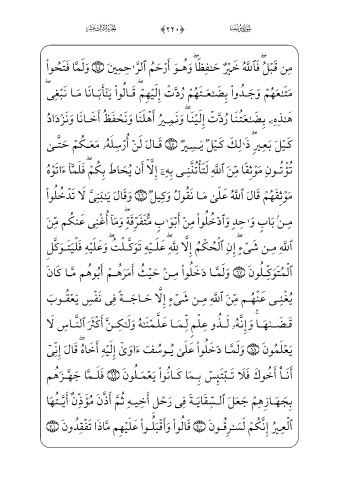 سورة يوسف ﴿٢٢٠﴾ الجزء الثالث عشر
مِن قَبْلُ فَٱللَّهُ خَيْرٌ حَـٰفِظًا وَهُوَ أَرْحَمُ ٱلرَّٰحِمِينَ ﴿٦٤﴾ وَلَمَّا فَتَحُوا۟
مَتَـٰعَهُمْ وَجَدُوا۟ بِضَـٰعَتَهُمْ رُدَّتْ إِلَيْهِمْ قَالُوا۟ يَـٰٓأَبَانَا مَا نَبْغِى
هَـٰذِهِۦ بِضَـٰعَتُنَا رُدَّتْ إِلَيْنَا وَنَمِيرُ أَهْلَنَا وَنَحْفَظُ أَخَانَا وَنَزْدَادُ
كَيْلَ بَعِيرٍ ذَٰلِكَ كَيْلٌ يَسِيرٌ ﴿٦٥﴾ قَالَ لَنْ أُرْسِلَهُۥ مَعَكُمْ حَتَّىٰ
تُؤْتُونِ مَوْثِقًا مِّنَ ٱللَّهِ لَتَأْتُنَّنِى بِهِۦٓ إِلَّآ أَن يُحَاطَ بِكُمْ فَلَمَّآ ءَاتَوْهُ
مَوْثِقَهُمْ قَالَ ٱللَّهُ عَلَىٰ مَا نَقُولُ وَكِيلٌ ﴿٦٦﴾ وَقَالَ يَـٰبَنِىَّ لَا تَدْخُلُوا۟
مِنۢ بَابٍ وَٰحِدٍ وَٱدْخُلُوا۟ مِنْ أَبْوَٰبٍ مُّتَفَرِّقَةٍ وَمَآ أُغْنِى عَنكُم مِّنَ
ٱللَّهِ مِن شَىْءٍ إِنِ ٱلْحُكْمُ إِلَّا لِلَّهِ عَلَيْهِ تَوَكَّلْتُ وَعَلَيْهِ فَلْيَتَوَكَّلِ
ٱلْمُتَوَكِّلُونَ ﴿٦٧﴾ وَلَمَّا دَخَلُوا۟ مِنْ حَيْثُ أَمَرَهُمْ أَبُوهُم مَّا كَانَ
يُغْنِى عَنْهُم مِّنَ ٱللَّهِ مِن شَىْءٍ إِلَّا حَاجَةً فِى نَفْسِ يَعْقُوبَ
قَضَىٰهَا وَإِنَّهُۥ لَذُو عِلْمٍ لِّمَا عَلَّمْنَـٰهُ وَلَـٰكِنَّ أَكْثَرَ ٱلنَّاسِ لَا
يَعْلَمُونَ ﴿٦٨﴾ وَلَمَّا دَخَلُوا۟ عَلَىٰ يُوسُفَ ءَاوَىٰٓ إِلَيْهِ أَخَاهُ قَالَ إِنِّىٓ
أَنَا۠ أَخُوكَ فَلَا تَبْتَئِسْ بِمَا كَانُوا۟ يَعْمَلُونَ ﴿٦٩﴾ فَلَمَّا جَهَّزَهُم
بِجَهَازِهِمْ جَعَلَ ٱلسِّقَايَةَ فِى رَحْلِ أَخِيهِ ثُمَّ أَذَّنَ مُؤَذِّنٌ أَيَّتُهَا
ٱلْعِيرُ إِنَّكُمْ لَسَـٰرِقُونَ ﴿٧٠﴾ قَالُوا۟ وَأَقْبَلُوا۟ عَلَيْهِم مَّاذَا تَفْقِدُونَ ﴿٧١﴾